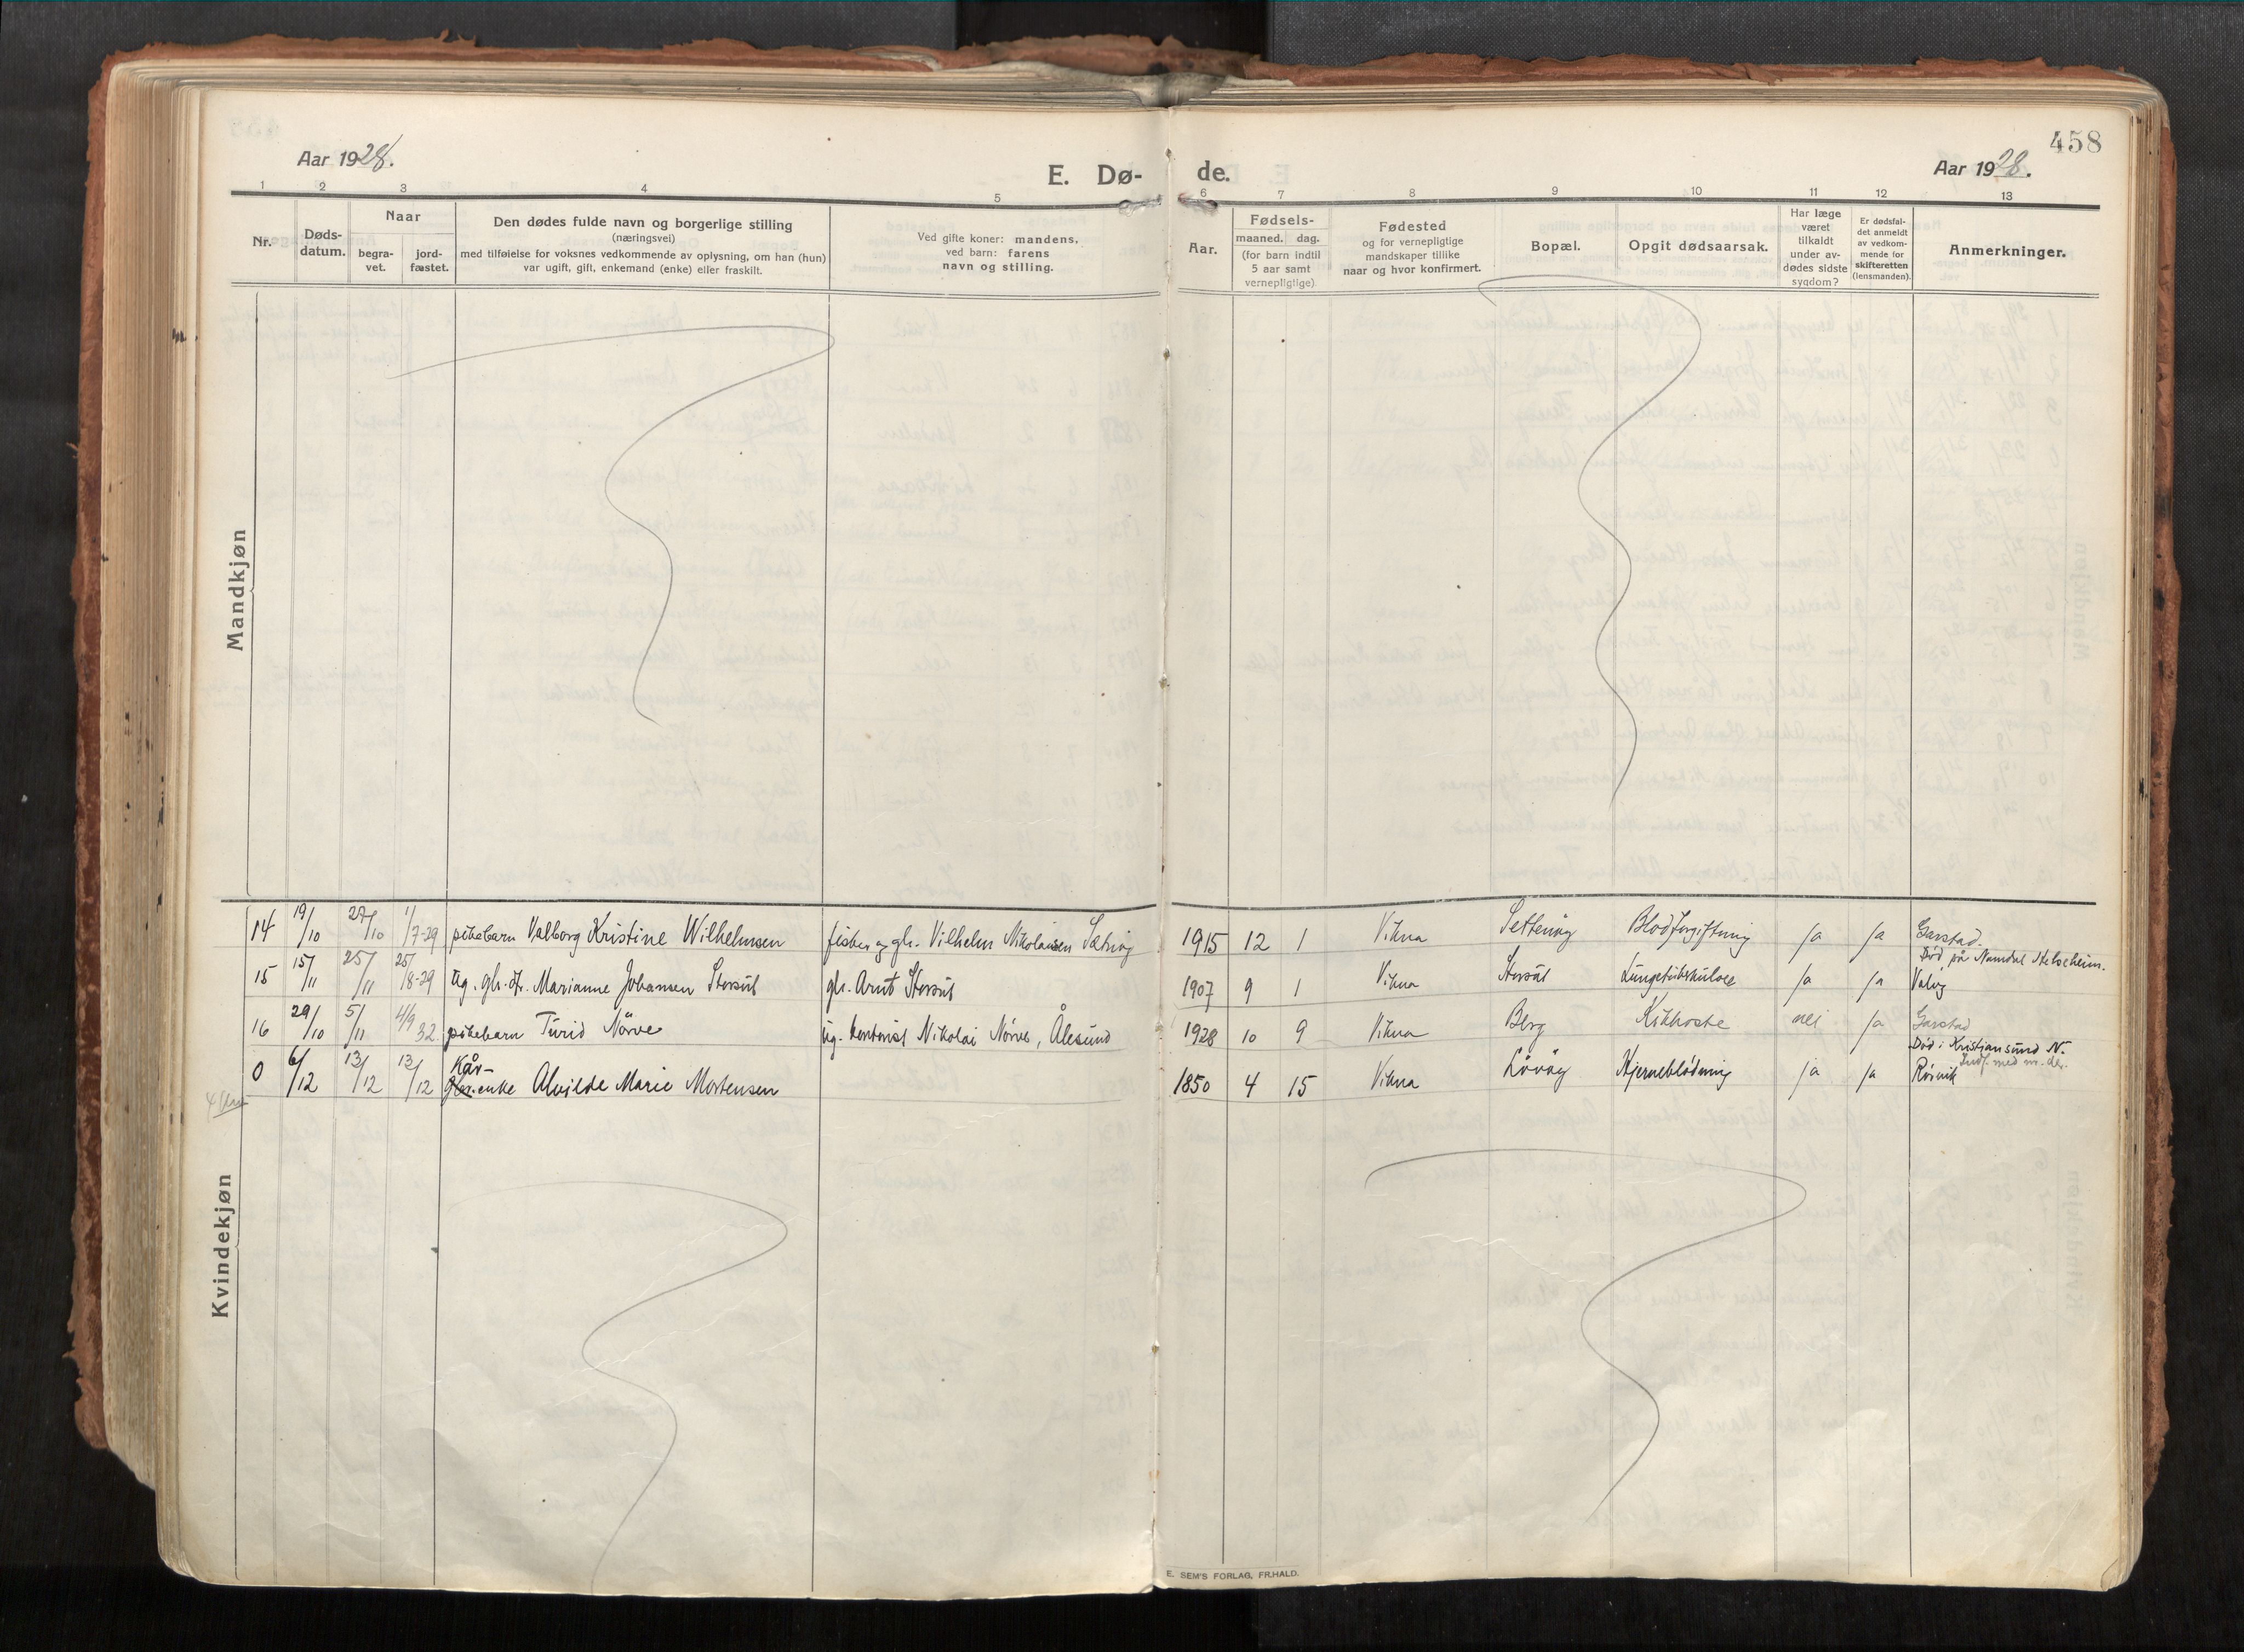 458
Aar 1928.
E. Dø-
de.
Aar 1928.
1 2 3 4 5 6 7 8 9 10 11 12 13
Nr.
Døds-
datum.
Naar
begra-
vet.
jord-
fæstet.
Den dødes fulde navn og borgerlige stilling
(næringsvei)
med tilføielse for voksnes vedkommende av oplysning, om han (hun)
var ugift, gift, enkemand (enke) eller fraskilt.
Ved gifte koner: mandens.
ved barn: farens
navn og stilling.
Aar.
Fødsels-
maaned. dag.
(for barn indtil
5 aar samt
vernepligtige)
Fødested
og for vernepligtige
mandskaper tillike
naar og hvor konfirmert.
Bopæl.
Opgit dødsaarsak.
Har læge
været
tilkaldt
under av-
dødes sidste
sygdom?
Er dødsfal-
det anmeldt
av vedkom-
mende for
skifteretten
(lensmanden).
Anmerkninger.
Mandkjøn
14 19/10 27/10 1/7-29 pikebarn Valborg Kristine Wilhelmsen fisker og gbr. Vilhelm Nikolaisen Sætervig 1915 12 1 Vikna Settervig Blodforgiftning ja ja Garstad.
Død på Namdal Helseheim.
15 15/11 25/11 25/8-29 ug. gbr.dr. Marianne Johansen Storsul gbr. Arnt Storsul 1907 9 1 Vikna Storsul Lungetuberkulose ja ja Valøy
16 29/10 5/11 4/9 32. pikebarn Turid Nörve ug. kontorist Nikolai Nörve, Ålesund 1928 10 9 Vikna Berg Kikhoste nei ja Garstad
Død i Kristjansund N.
Indf. med m. der.
0 6/12 13/12 13/12 Kår-
gbr.enke Alvilde Marie Mortensen 1850 4 15 Vikna Lövöy Hjerneblödning ja ja Rörvik
Kvindekjøn
E. SEM'S FORLAG, FR.HALD.